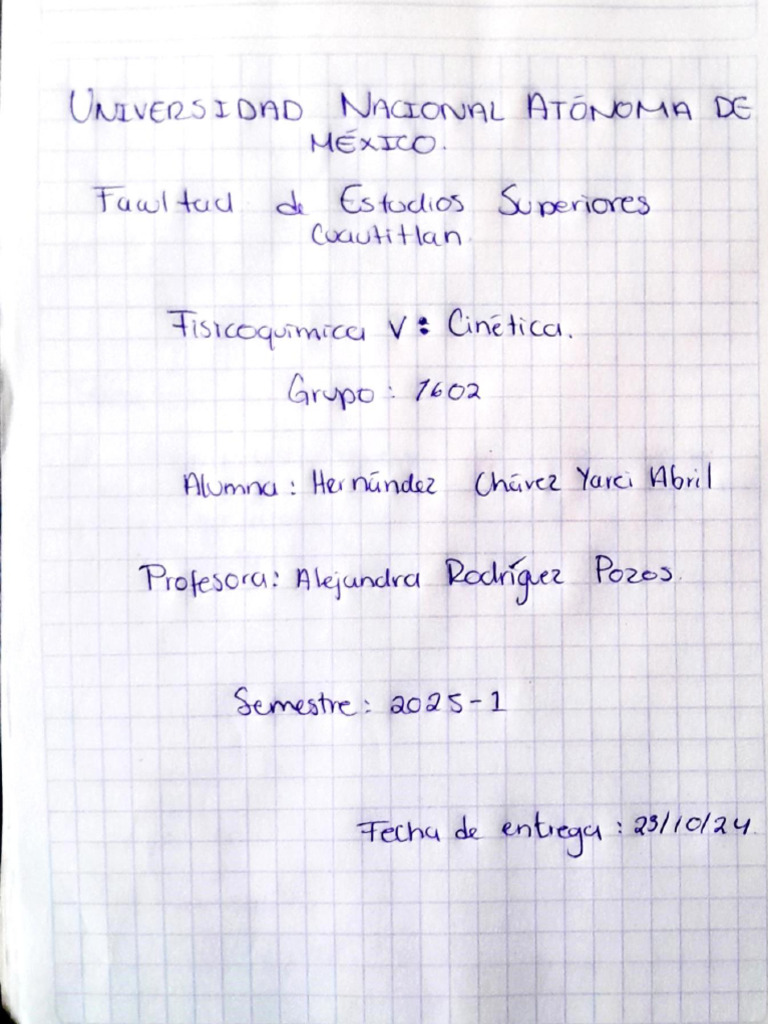 UNIVERSIDAD NACIONAL ATÓNOMA DE
MÉXICO.
Facultad de Estudios Superiores
Cuautitlan.
Fisicoquímica V: Cinética.
Grupo: 1602
Alumna: Hernández Chávez Yarei Abril
Profesora: Alejandra Rodríguez Pozos.
Semestre: 2025-1
Fecha de entrega: 23/10/24.